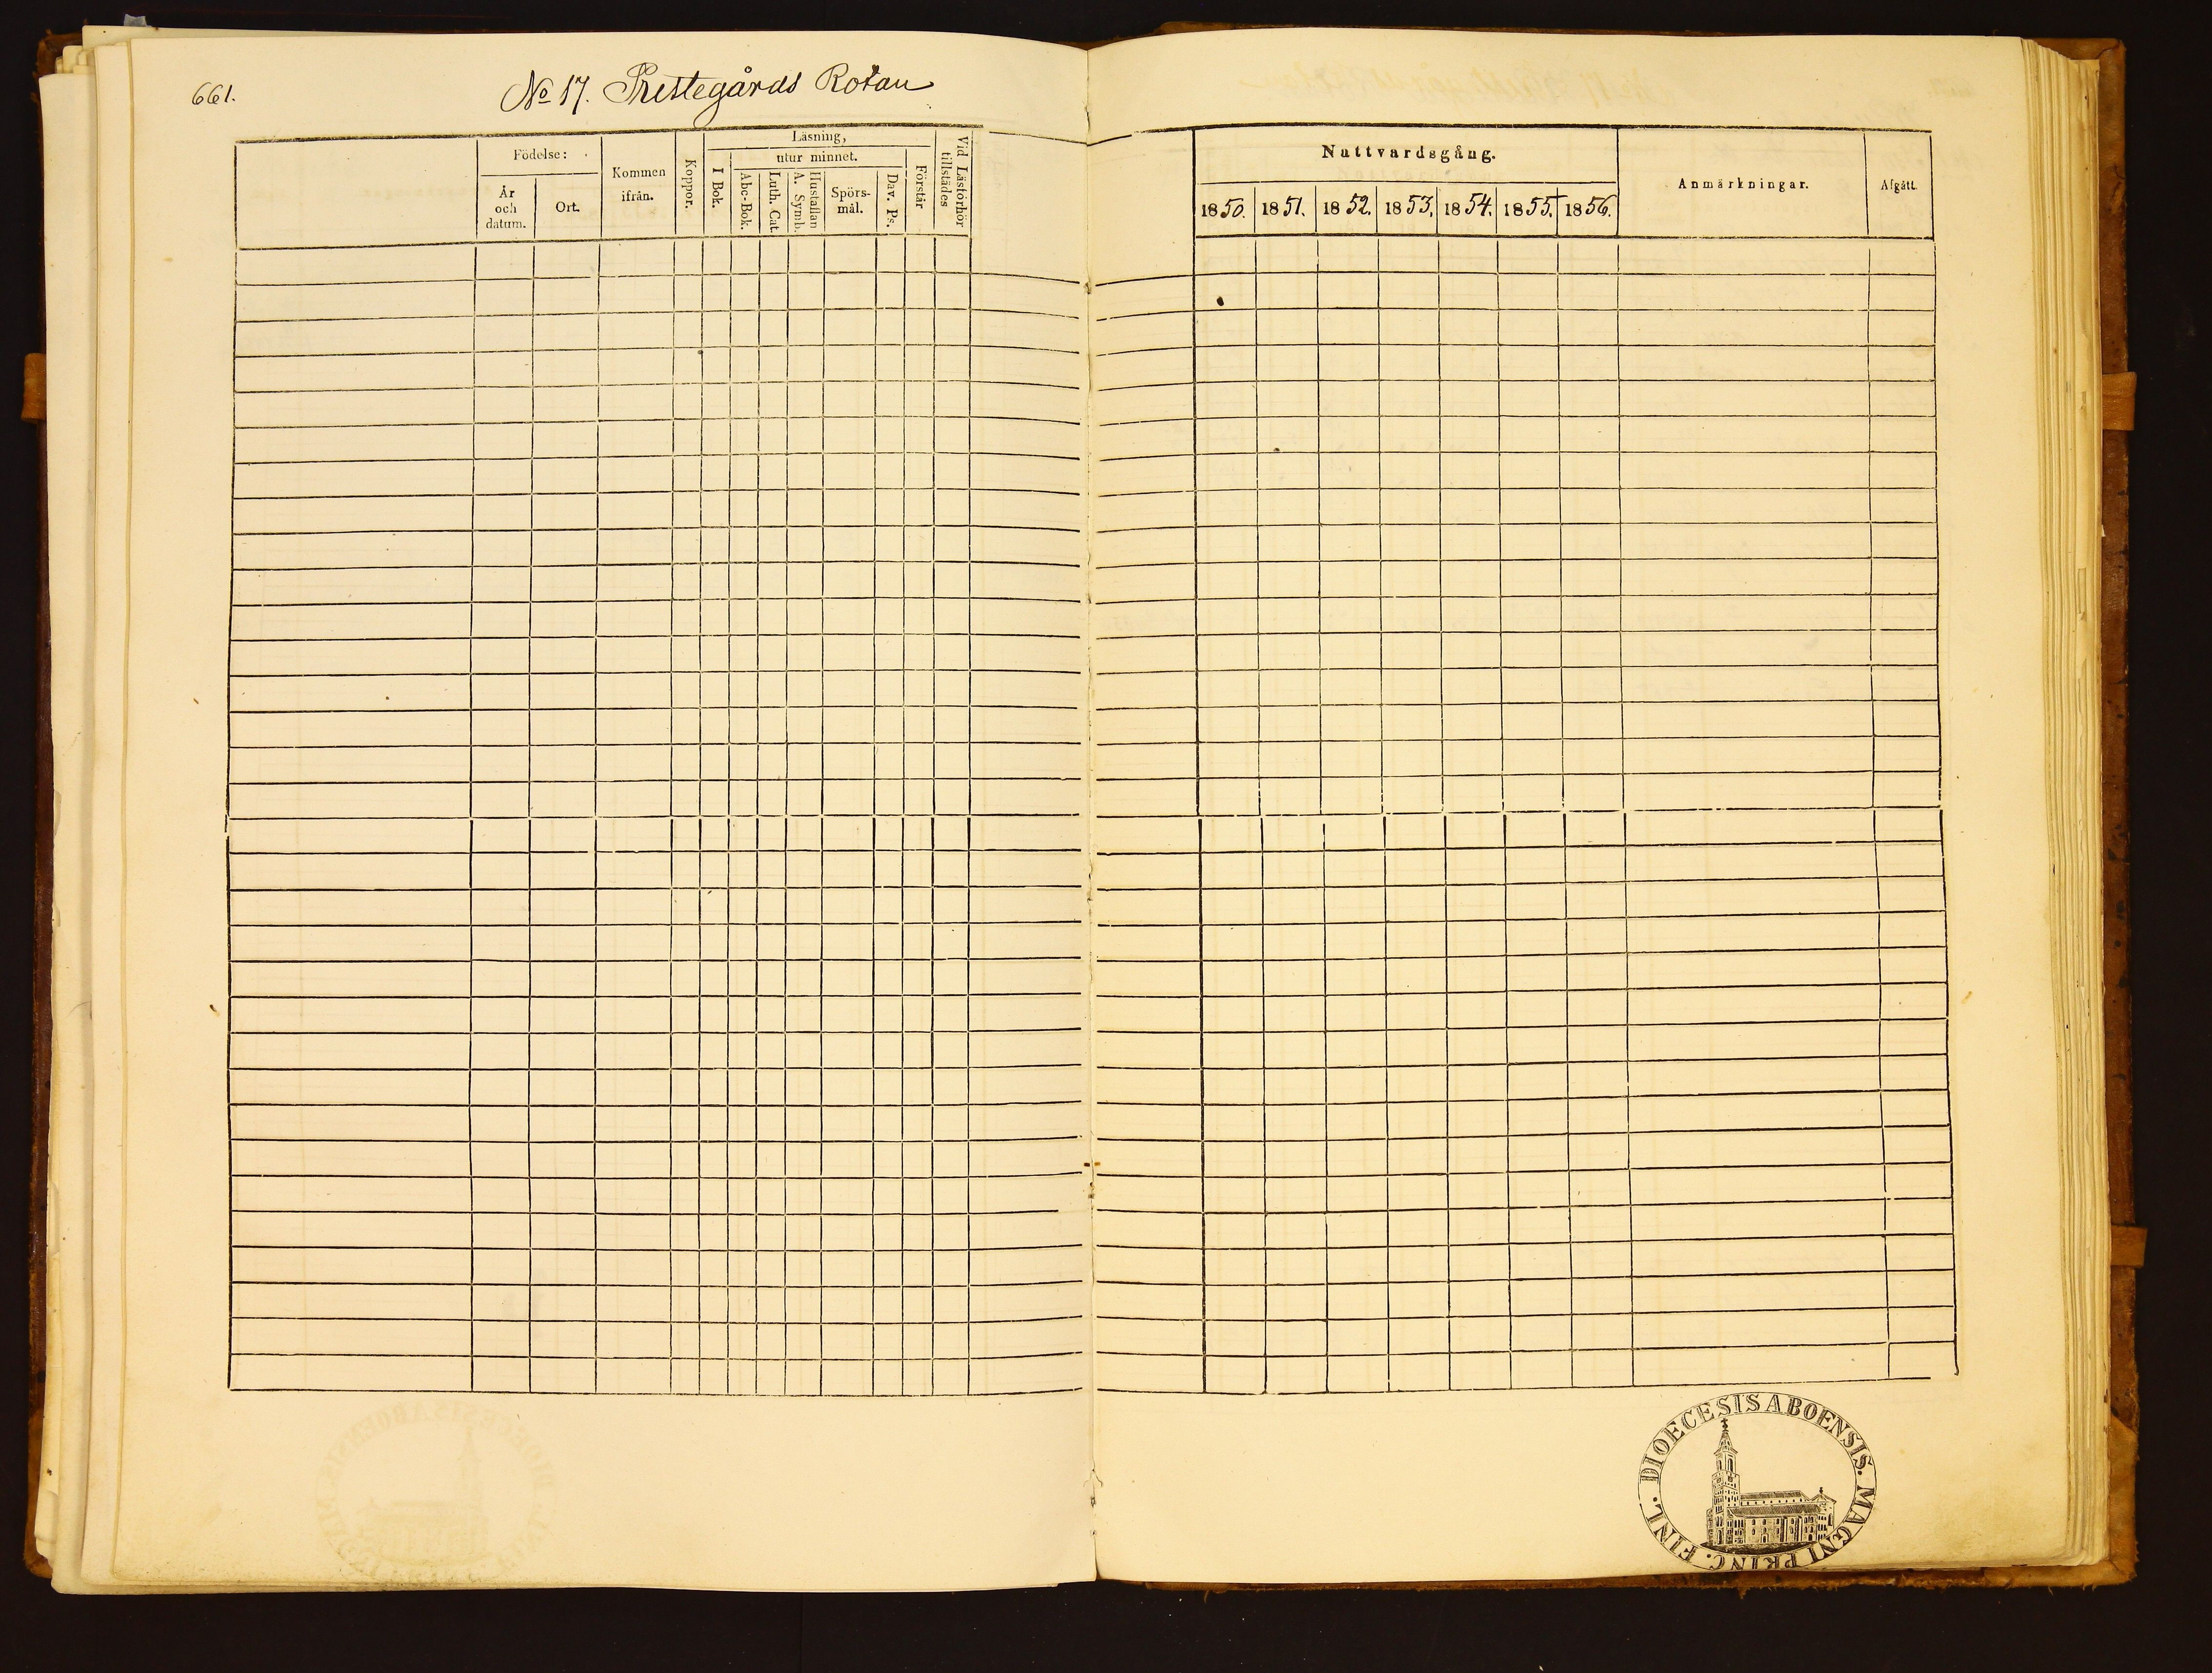 661.
No 17. Prestegårds Rotan
Födelse:
År och datum.
Ort.
Kommen ifrån.
Koppor.
Läsning,
I Bok.
utur minnet.
Abc-Bok.
Luth. Cat.
Hustaflan A. Symb.
Spörs-mål.
Dav. Ps.
Förstår
Vid Läsförhör tillstädes
Nattvardsgång.
1850. 1851. 1852. 1853. 1854. 1855. 1856.
Anmärkningar.
Afgått.
DIOECESIS ABOENSIS. MAGNI PRINC. FINL.